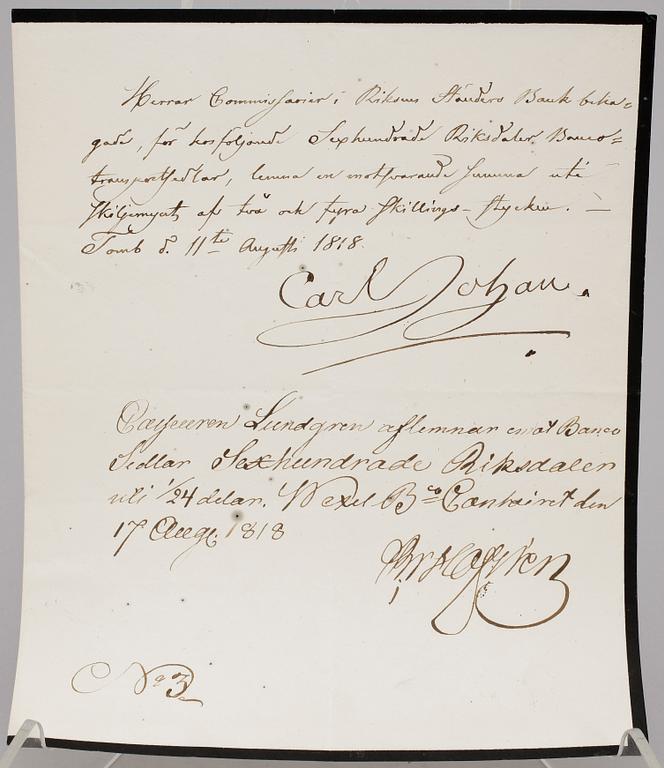 Herrar Commissarier i Riksens Ständers Bank beha-
gade, för hosföljande Sexhundrade Riksdaler Banco-
transportsedlar, lemna en motsvarande summa uti
skiljemynt af två och fyra skillings-stycken. —
d. 11te Augusti 1818.
Carl Johan.
Casseuren Lundgren aflemnar emot Banco
Sedlar Sexhundrade Riksdaler
uti 1/24 delar. Wexel Bco Contoiret den
17 Aug. 1818
No 3